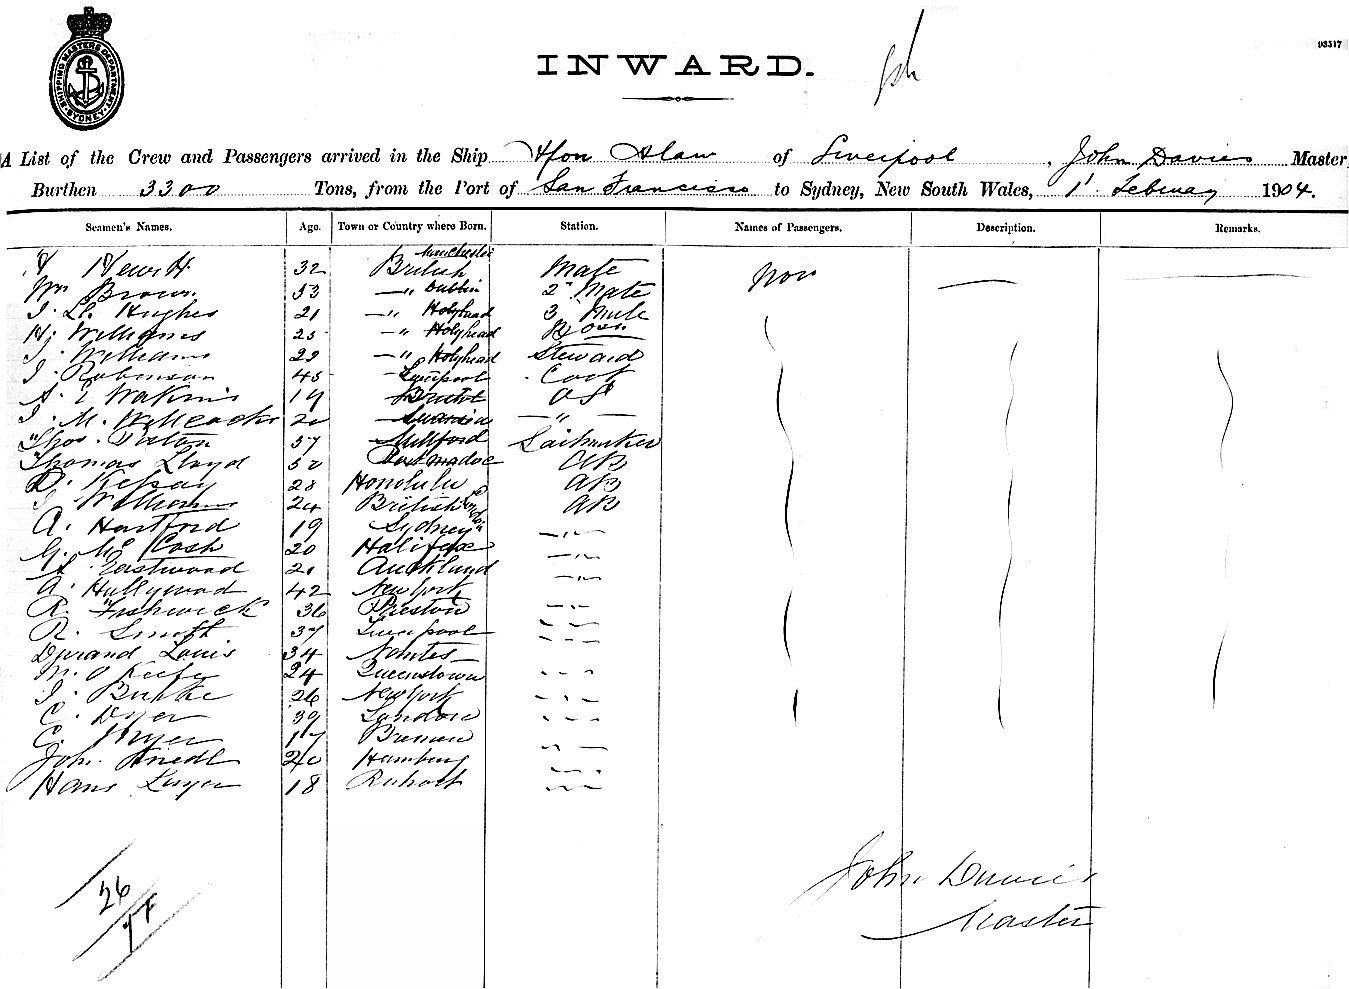 SHIPPING MASTERS DEPARTMENT. SYDNEY.
93517
INWARD.
A List of the Crew and Passengers arrived in the Ship Afon Alaw of Liverpool, John Davies Master
Burthen 3300 Tons, from the Port of San Francisco to Sydney, New South Wales, 1st February 1904.
Seamen's Names. Age. Town or Country where Born. Station. Names of Passengers. Description. Remarks.
H Hewitt 32 British Manchester Mate Non —
Wm Brown 53 —"— Dublin 2nd Mate
J. Ll. Hughes 21 —" Holyhead 3 Mate
Hy Williams 25 —" Holyhead Bosn.
J. Williams 22 —" Holyhead Steward
J. Robinson 45 Liverpool Cook
A. E Watkins 19 Bristol OS
J. M. Willcocks 20 Swansea —"—
Thos. Paton 57 Millford Sailmaker
Thomas Lloyd 50 Portmadoc AB
D. 28 Honolulu AB
J Williams 24 British London AB
A. Hartford 19 Sydney —"—
G. Mc Cash 20 Halifax —"—
A Eastwood 21 Auckland —"—
A. Hollywood 42 New York —"—
R. Fishwick 36 Preston —"—
R. Smith 37 Liverpool —"—
Louis 34 Nantes —"—
M. O Keefe 24 Queenstown —"—
J. Burke 26 New York —"—
C. Dyer 39 London —"—
C. Meyer 17 Bremen —"—
Joh. Friedl 20 Hamburg —"—
Hans 18 —"—
John Davies
Master
26